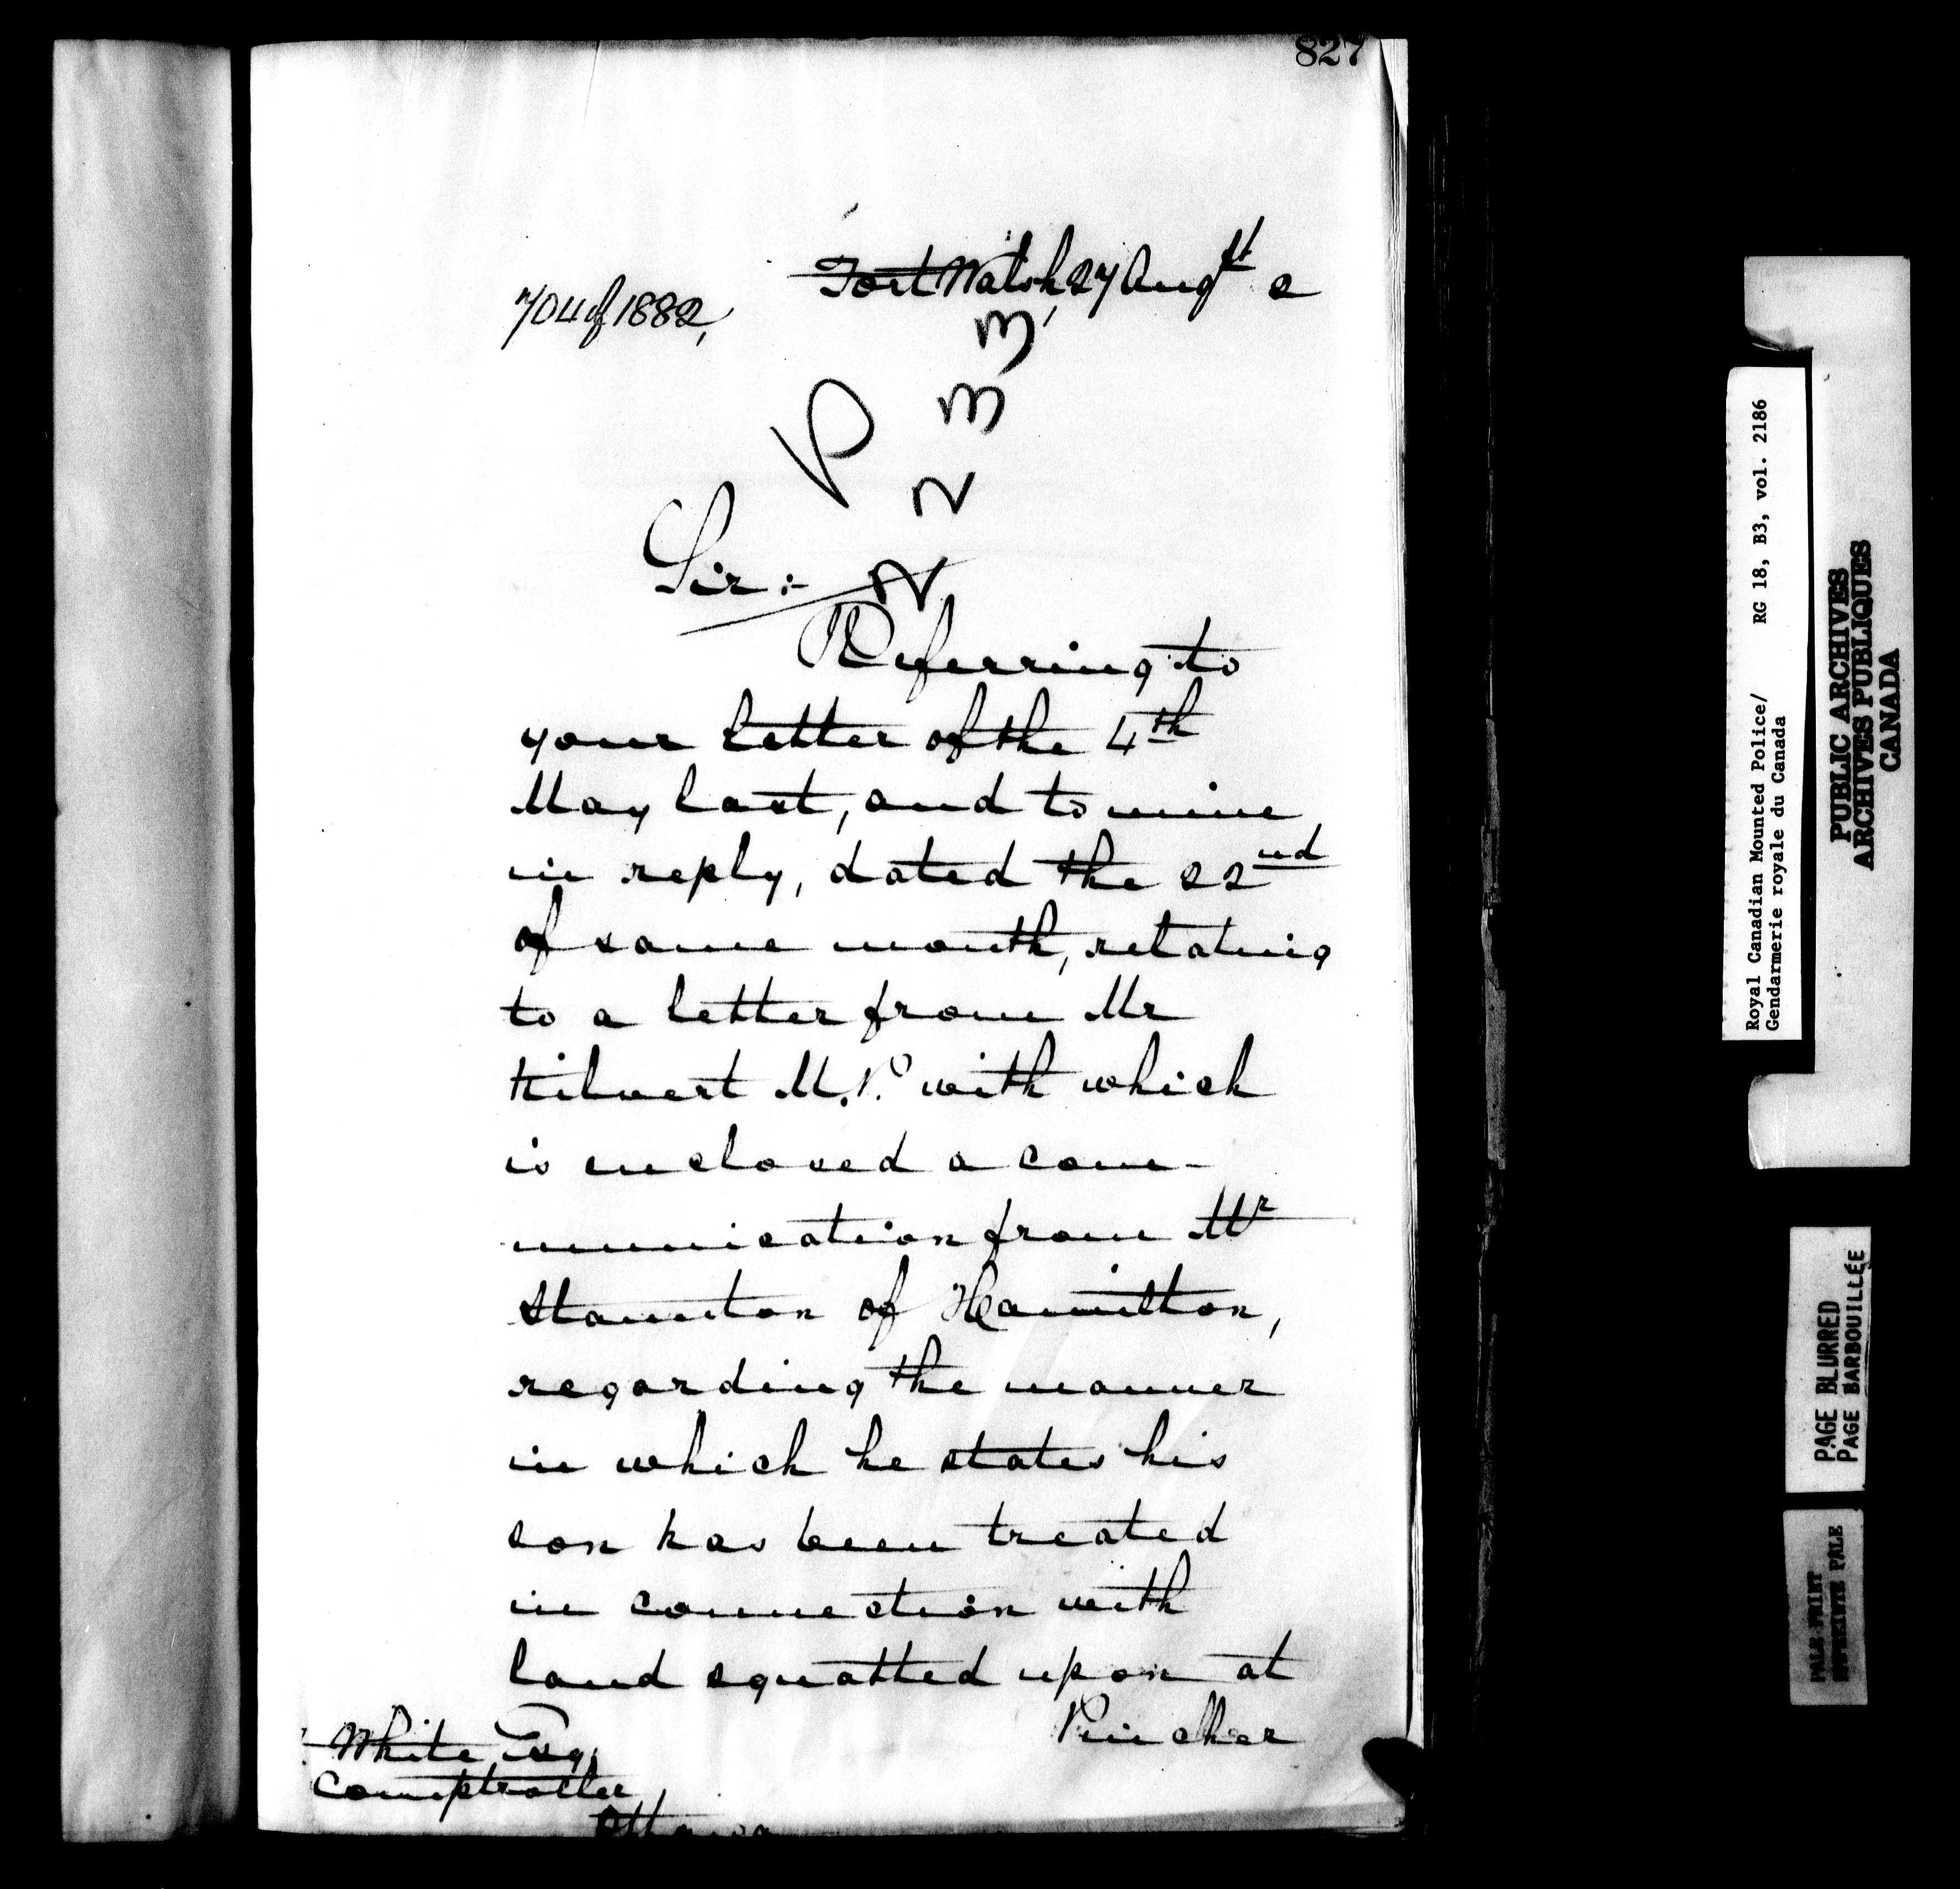 827
Fort Walsh, 27 Augst 2
704 of 1882,
P
2 2 3 3
Sir :-
Referring to
your letter of the 4th
May last, and to mine
in reply, dated the 22nd
of same month, relating
to a letter from Mr
Kilvert M.P. with which
is enclosed a com-
munication from Mr
Staunton of Hamilton,
regarding the manner
in which he states his
son has been treated
in connection with
land squatted upon at
Pincher
White Esq.
Comptroller
Ottawa
Royal Canadian Mounted Police/ RG 18, B3, vol. 2186
Gendarmerie royale du Canada
PUBLIC ARCHIVES
ARCHIVES PUBLIQUES
CANADA
PAGE BLURRED
PAGE BARBOUILLÉE
PALE PRINT
PALE